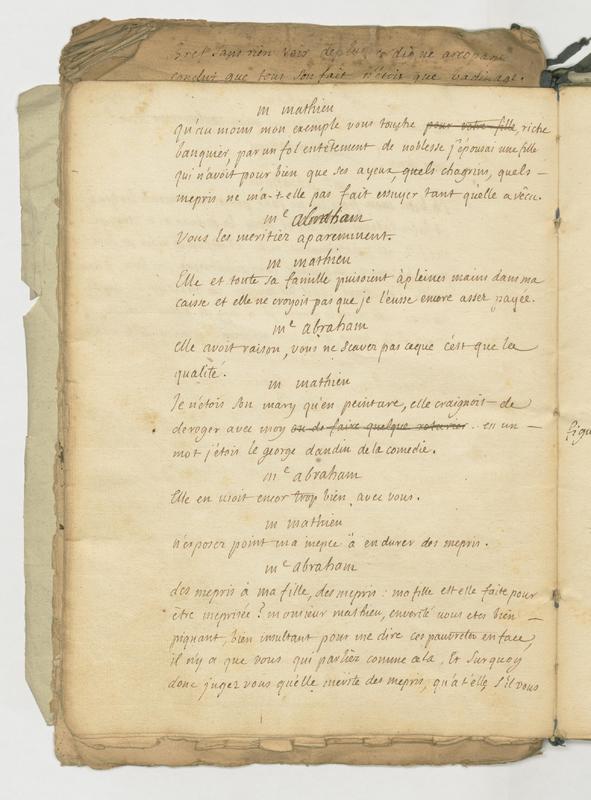 Bref sans rien voir de plus
conclut que tout son fait n'étoit que badinage.
m mathieu
qu'au moins mon exemple vous touche pour votre fille, riche
banquier, par un fol entêtement de noblesse j'épousai une fille
qui n'avoit pour bien que ses ayeux, quels chagrins, quels –
mepris ne m'a-t-elle pas fait essuyer tant qu'elle a vêcu.
me abraham
Vous les meritiez aparemment.
m mathieu
Elle et toute sa famille puisoient à pleines mains dans ma
caisse et elle ne croyoit pas que je l'eusse encore assez payée.
me abraham
elle avoit raison, vous ne scavez pas ce que c'est que la
qualité.
m mathieu
Je n'étois son mary qu'en peinture, elle craignoit de
deroger avec moy ou de faire quelque roturier. en un –
mot j'étois le george dandin de la comedie.
me abraham
Elle en usoit encor trop bien avec vous.
m mathieu
n'exposez point ma niepce à endurer des mepris.
me abraham
des mepris à ma fille, des mepris : ma fille est elle faite pour
être meprisée ? monsieur mathieu, en verité vous etes bien –
piquant, bien insultant pour me dire ces pauvretez en face,
il n'y a que vous qui parliez comme cela. Et sur quoy
donc jugez vous qu'elle merite des mepris, qu'a t'elle s'il vous
figu